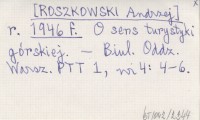 [ROSZKOWSKI Andrzej]
r. 1946 f. O sens turystyki
górskiej. - Biul. Oddz.
Warsz. PTT 1, nr 4: 4-6.